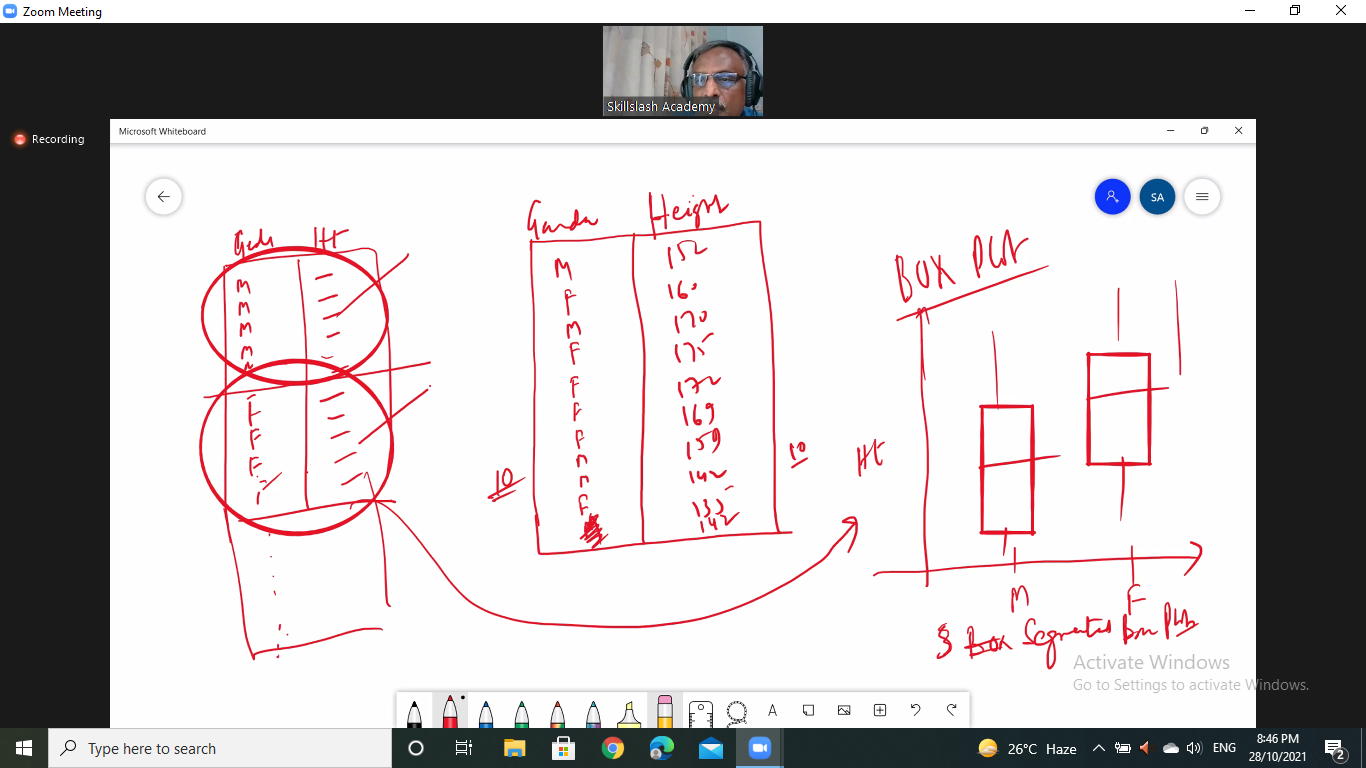 Zoom Meeting
Skillslash Academy
Recording
Microsoft Whiteboard
SA
Ht
M
M
M
M
F
F
F
Height
M 152
F 160
M 170
F 175
F 172
F 169
F 159
M 142
M 135
F 142
10
10
BOX Plot
Ht
M F
Box Segmented Box Plots
Activate Windows
Go to Settings to activate Windows.
A
Type here to search
26°C Haze
ENG
8:46 PM
28/10/2021
2